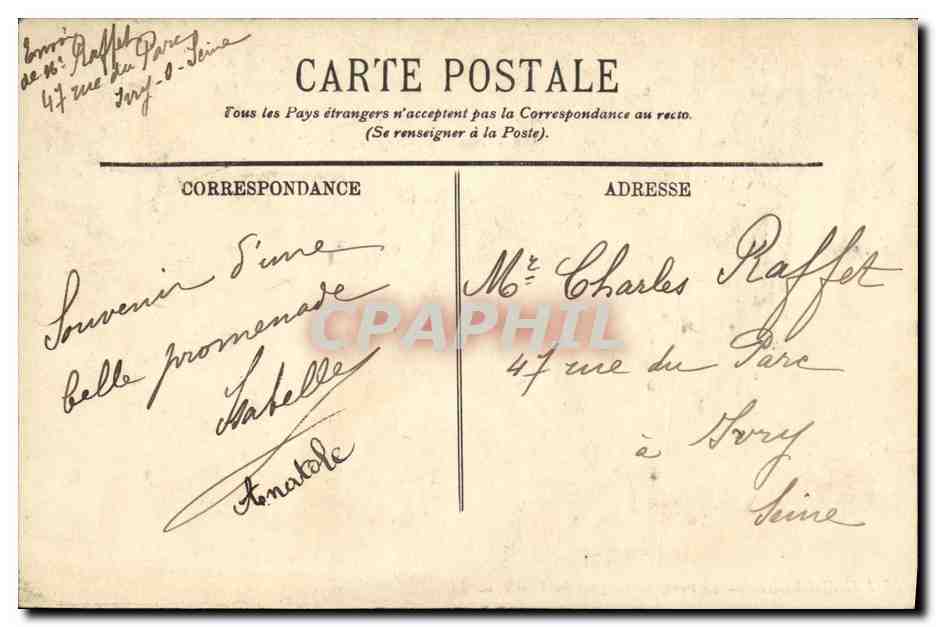 Envoi
de Mr Raffet
47 rue du Parc
Ivry-s-Seine
CARTE POSTALE
Tous les Pays étrangers n'acceptent pas la Correspondance au recto.
(Se renseigner à la Poste).
CORRESPONDANCE
Souvenir d'une
belle promenade
Isabelle
Anatole
ADRESSE
Mr Charles Raffet
47 rue du Parc
à Ivry
Seine
CPAPHIL